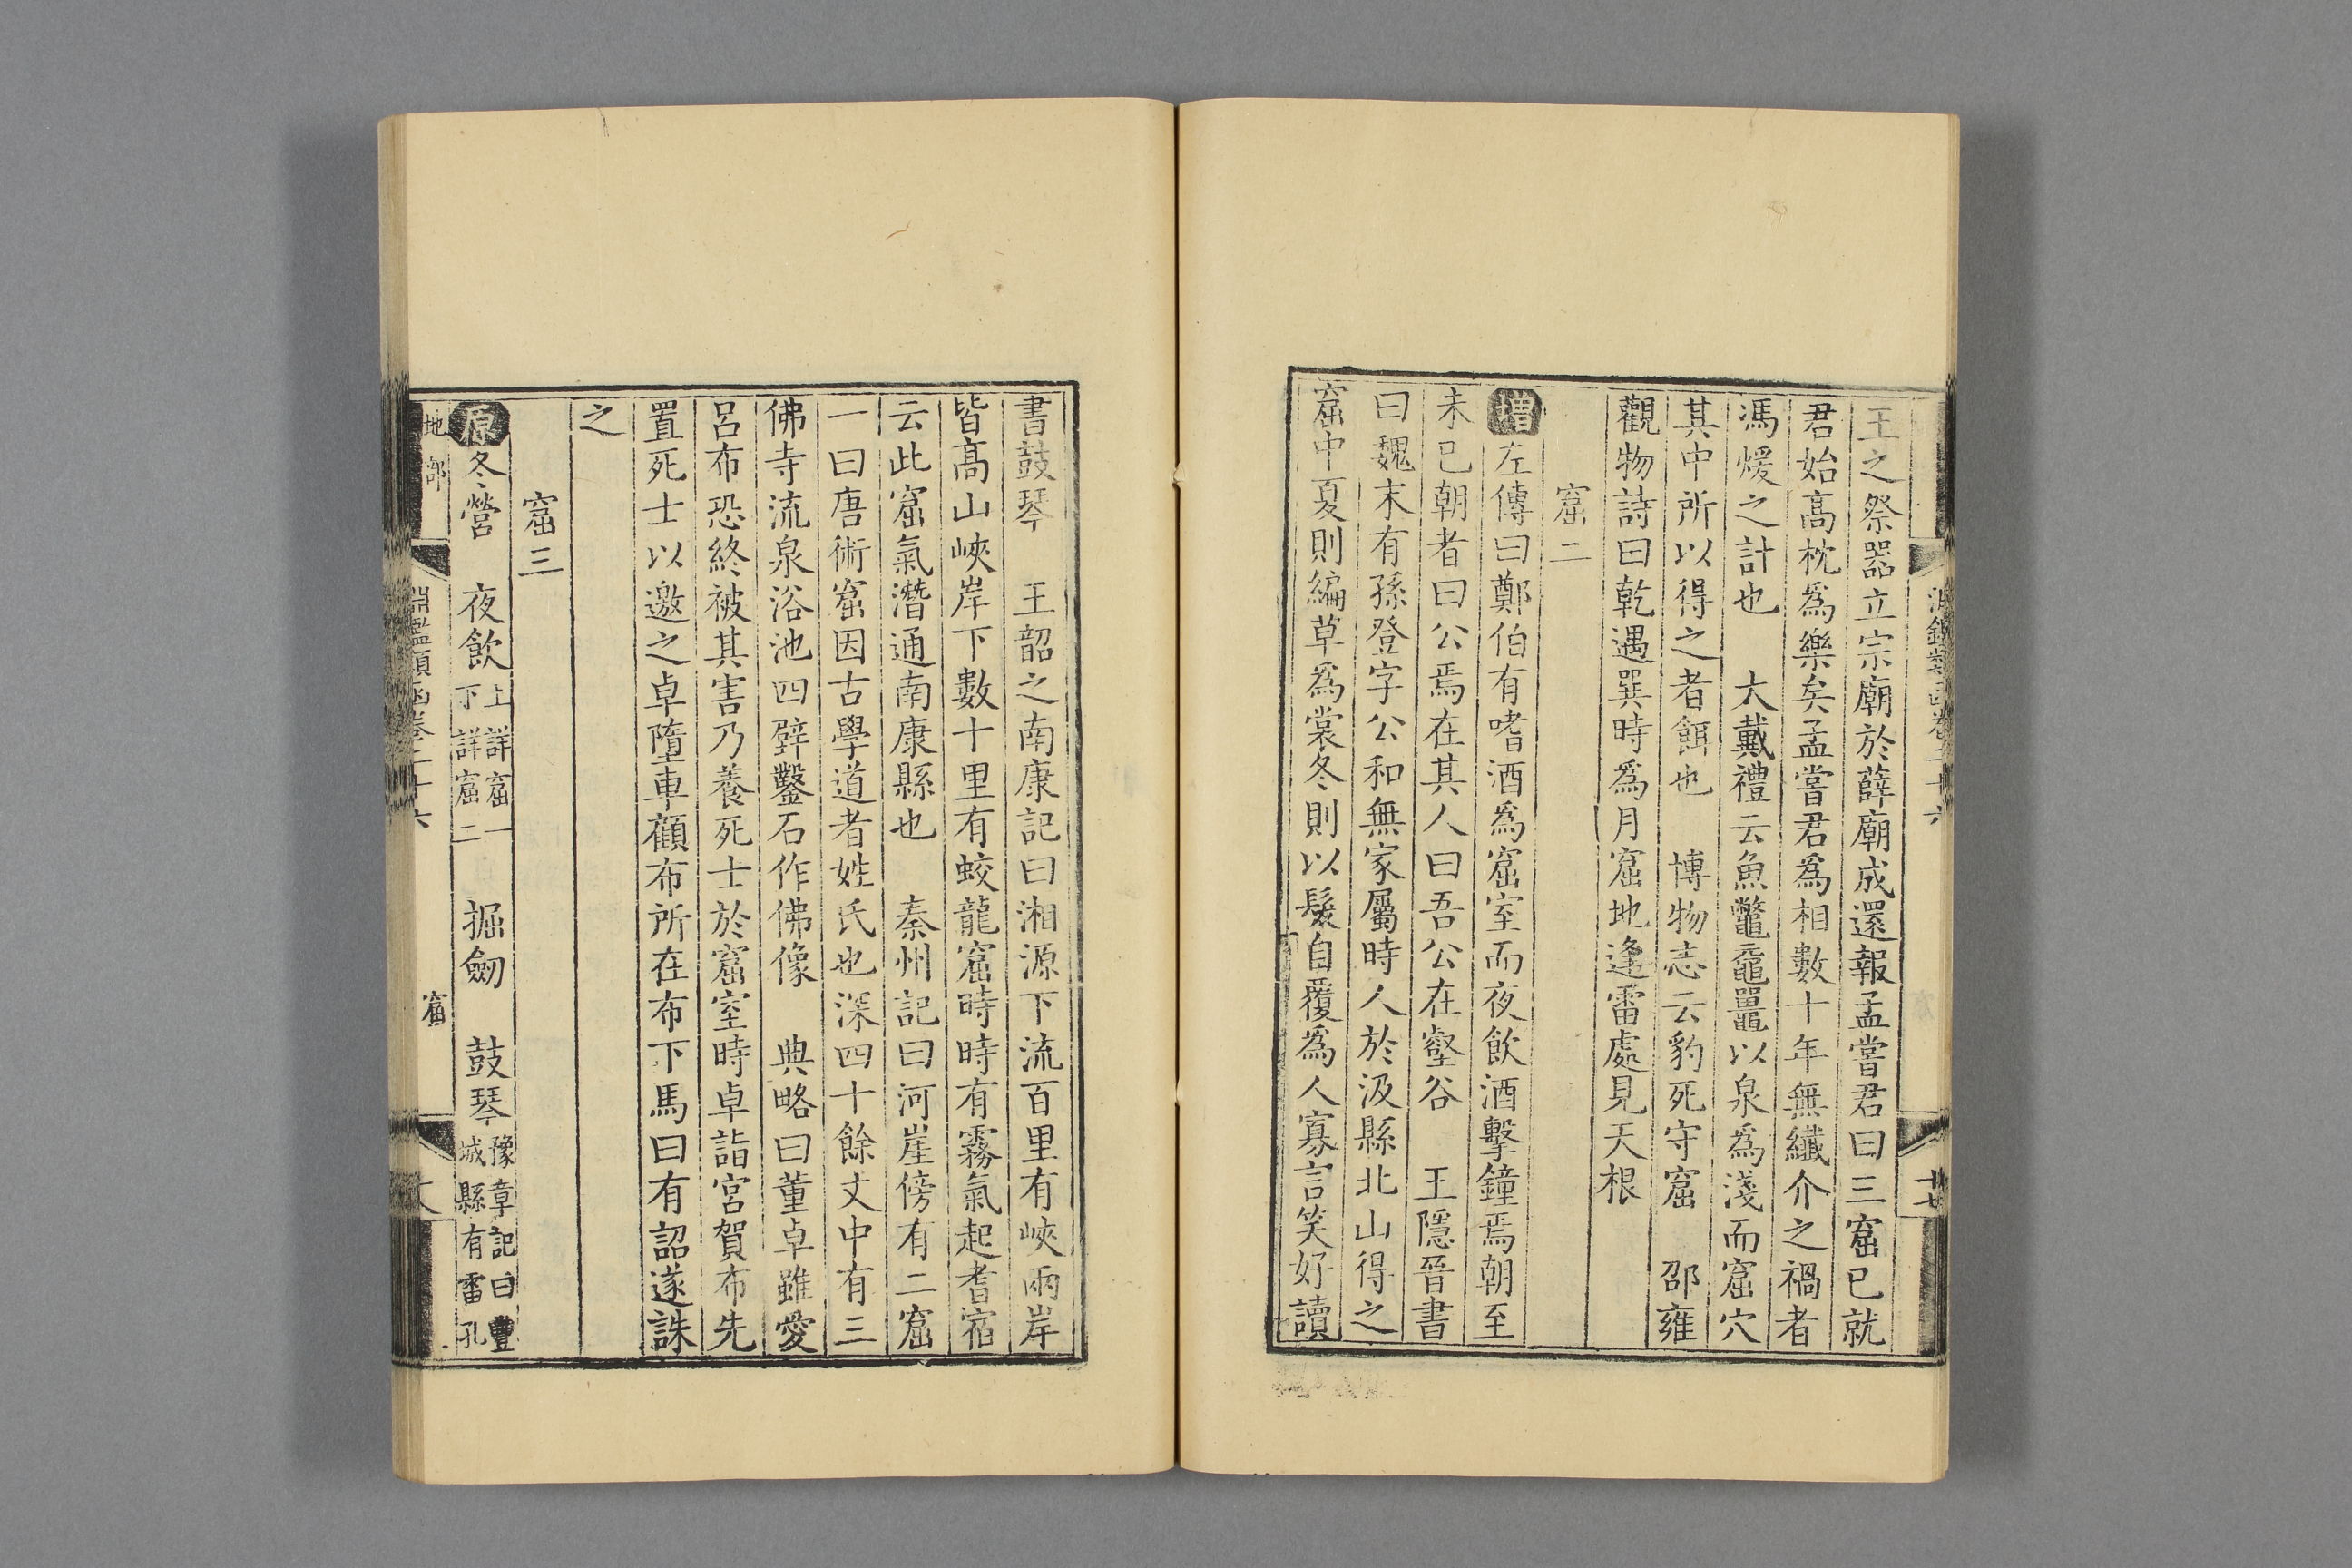 王之祭器立宗廟於薛廟成還報孟嘗君曰三窟已就
君始高枕為樂矣孟嘗君為相數十年無纖介之禍者
馮煖之計也　大戴禮云魚鼈黿鼉以泉為淺而窟穴
其中所以得之者餌也　博物志云豹死守窟　邵雍
觀物詩曰乾遇巽時為月窟地逢雷處見天根
窟二
增左傳曰鄭伯有嗜酒為窟室而夜飲酒擊鐘焉朝至
未已朝者曰公焉在其人曰吾公在壑谷　王隱晉書
曰魏末有孫登字公和無家屬時人於汲縣北山得之
窟中夏則編草為裳冬則以髮自覆為人寡言笑好讀
書鼓琴　王韶之南康記曰湘源下流百里有峽兩岸
皆高山峽岸下數十里有蛟龍窟時時有霧氣起耆宿
云此窟氣潛通南康縣也　秦州記曰河崖傍有二窟
一曰唐術窟因古學道者姓氏也深四十餘丈中有三
佛寺流泉浴池四壁鑿石作佛像　典略曰董卓雖愛
呂布恐終被其害乃養死士於窟室時卓詣宮賀布先
置死士以邀之卓墮車顧布所在布下馬曰有詔遂誅
之
窟三
原冬營　夜飲上詳窟一下詳窟二　掘劒　鼓琴豫章記曰豐城縣有雷孔
地部
淵鑑類函卷二十六
窟